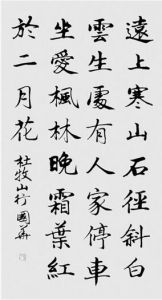 遠上寒山石徑斜白
雲生處有人家停車
坐愛楓林晚霜葉紅
於二月花 杜牧山行 國華